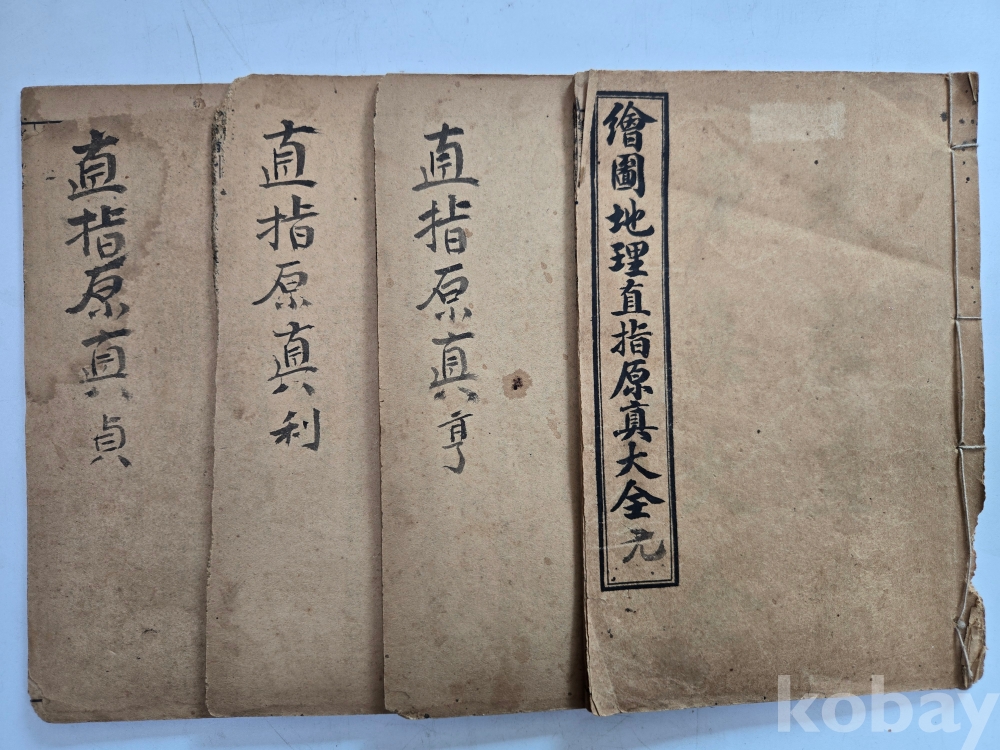 繪圖地理直指原真大全元
直指原真亨
直指原真利
直指原真貞
kobay